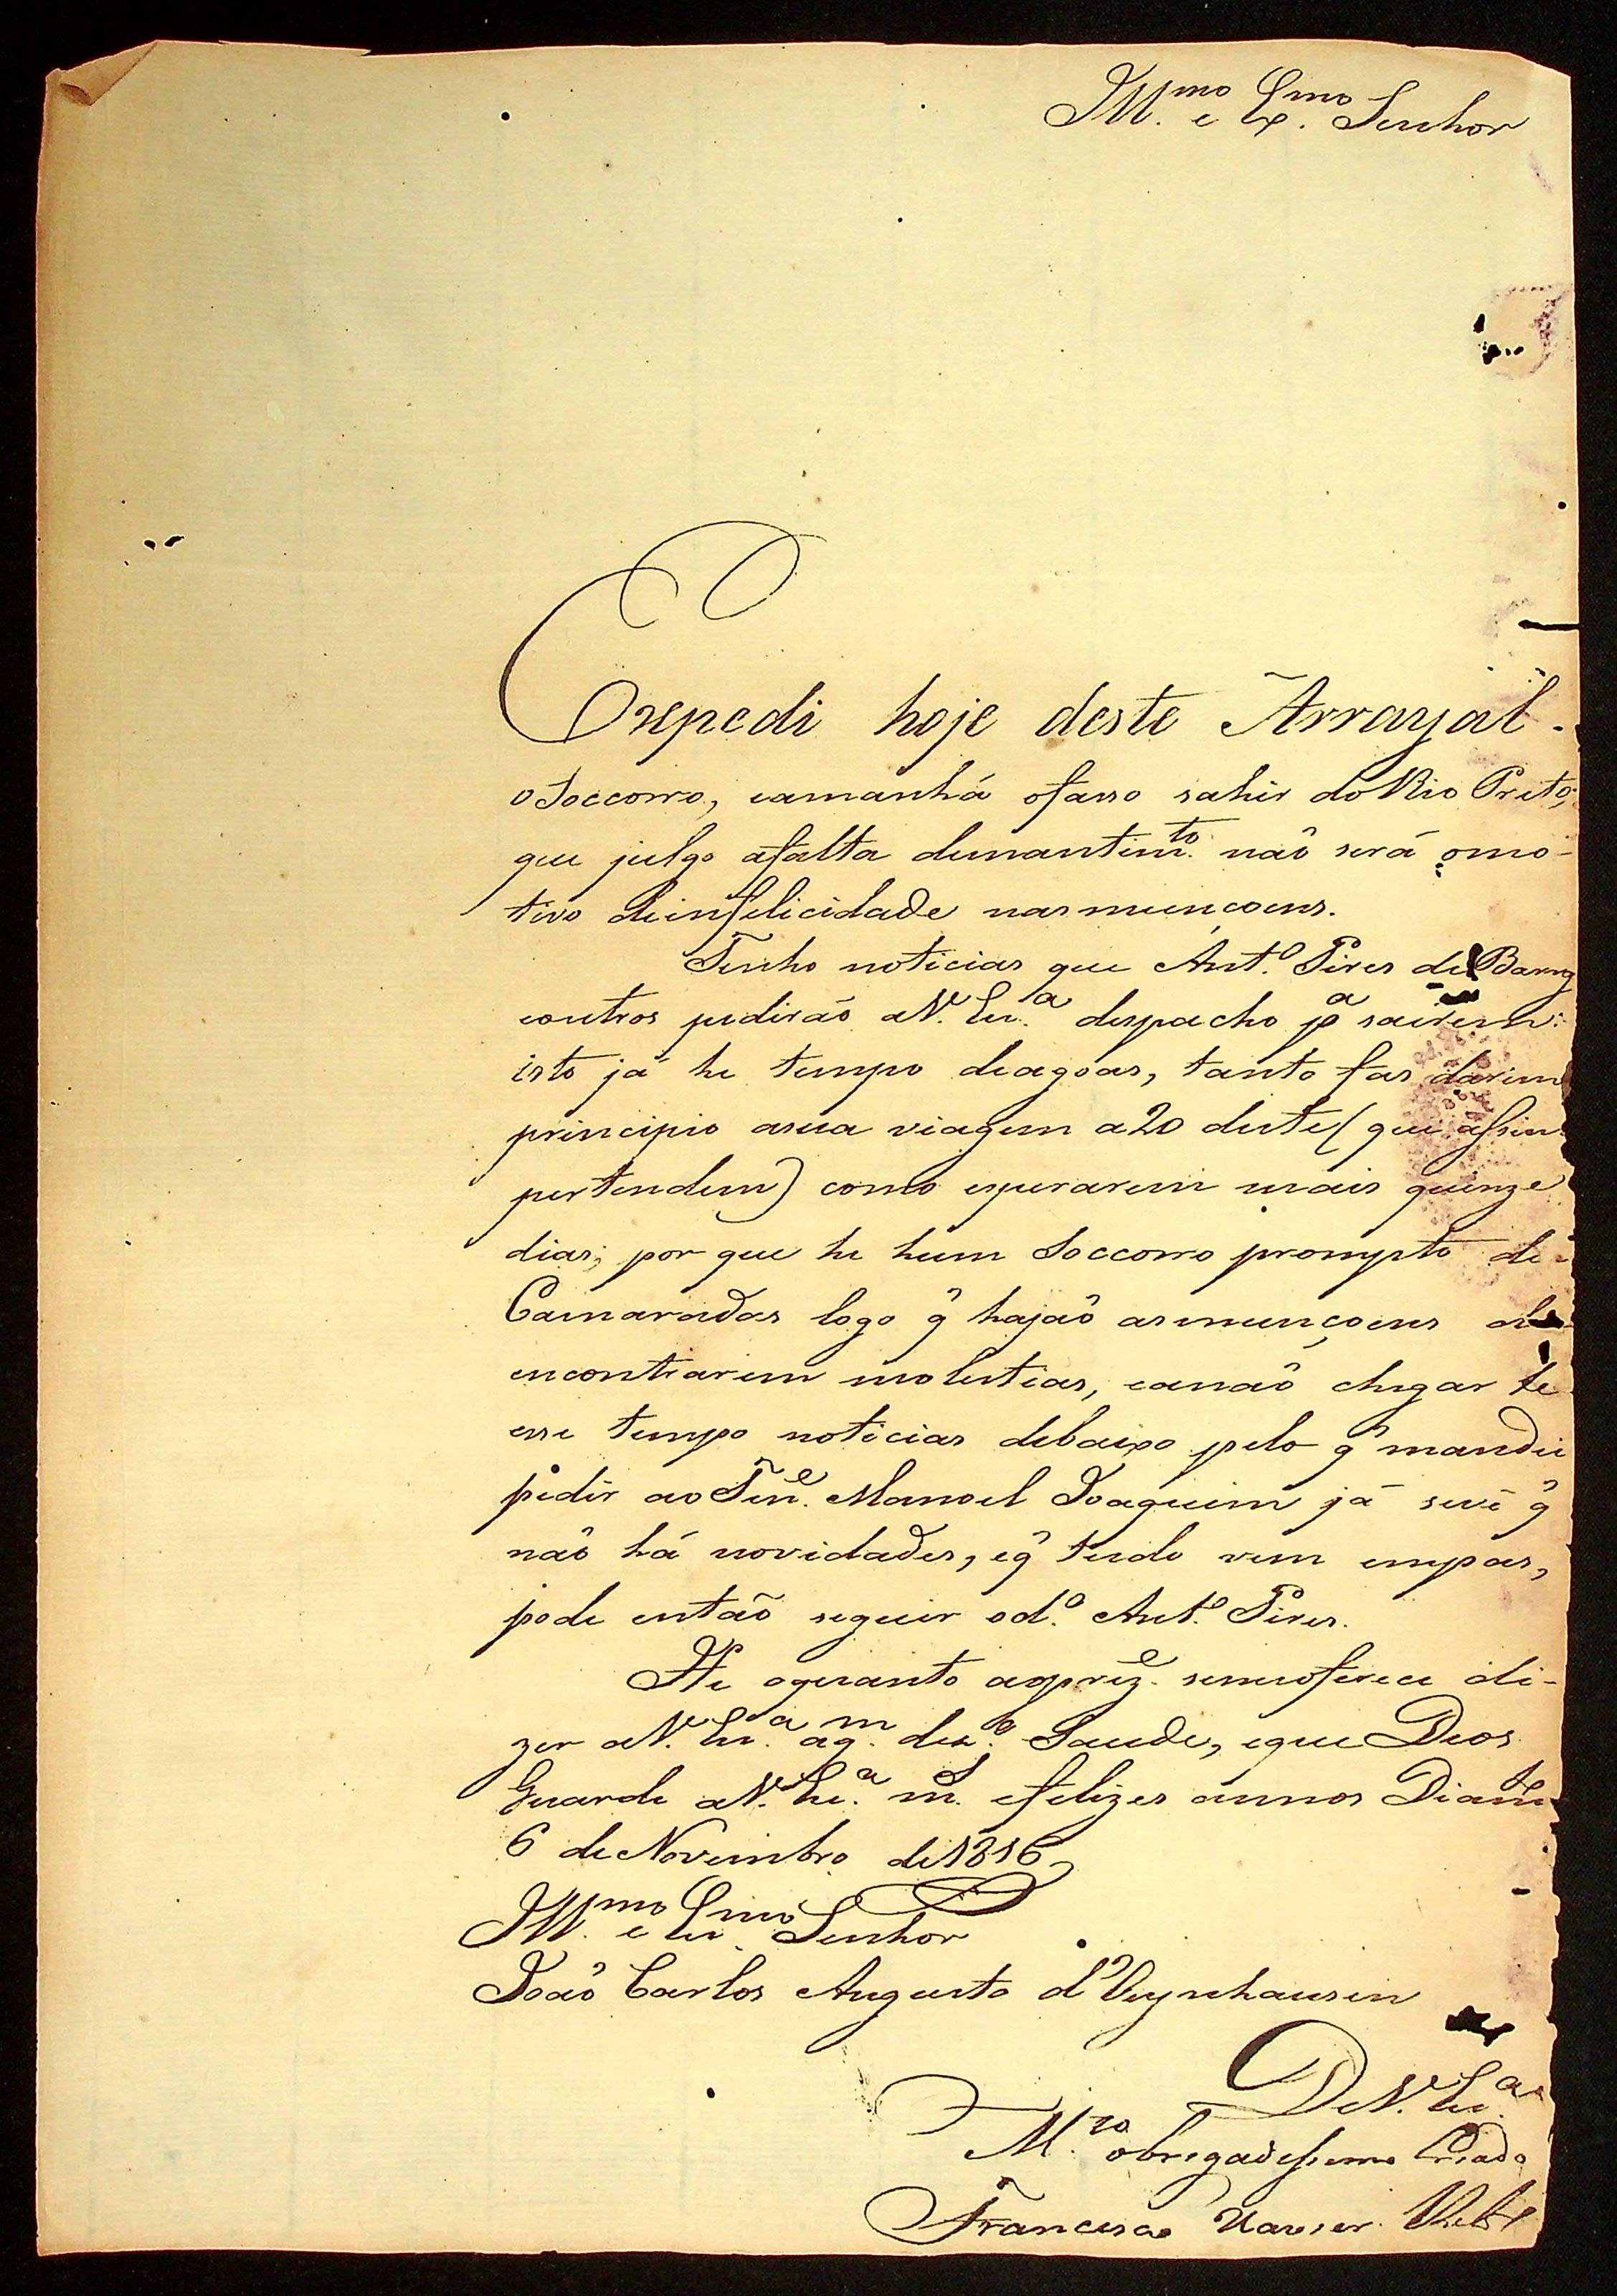 Ill.mo e Ex.mo Senhor
Expedi hoje deste Arrayal
o Soccorro, eamanhá ofasso sahir do Rio Preto,
que julgo afalta demantim.to naõ será omo-
tivo deinfelicidade nas munçoens.
Tenho noticias que Ant.o Pires de Barros
eoutros pediraõ aV. Ex.a despacho p.a sairem:
isto já he tempo deagoas, tanto fas darem
principio asua viagem a20 deste (que assim
pertendem) como esperarem mais quinze
dias; por que he hum Soccorro prompto de
Camaradas logo q̃ hajaõ as munçoens
encontrarem molestias, eanaõ chegar te
esse tempo noticias debaixo pelo q̃ mandei
pedir ao Ten.e Manoel Joaquim já se vê q̃
naõ há novidades, eq̃ tudo vem empas,
pode entaõ seguir od.o Ant.o Pires.
He oquanto aoprez.e semeoferece di-
zer aV. Ex.a aq.m dez.o Saude, eque Deos
Guarde aV. Ex.a m.s efelizes annos Diam.te
6 de Novembro de 1816
Ill.mo e Ex.mo Senhor
Joaõ Carlos Augusto d'Oeynhausen
De V. Ex.a
M.to obrigadissimo Criado
Francisco Xavier